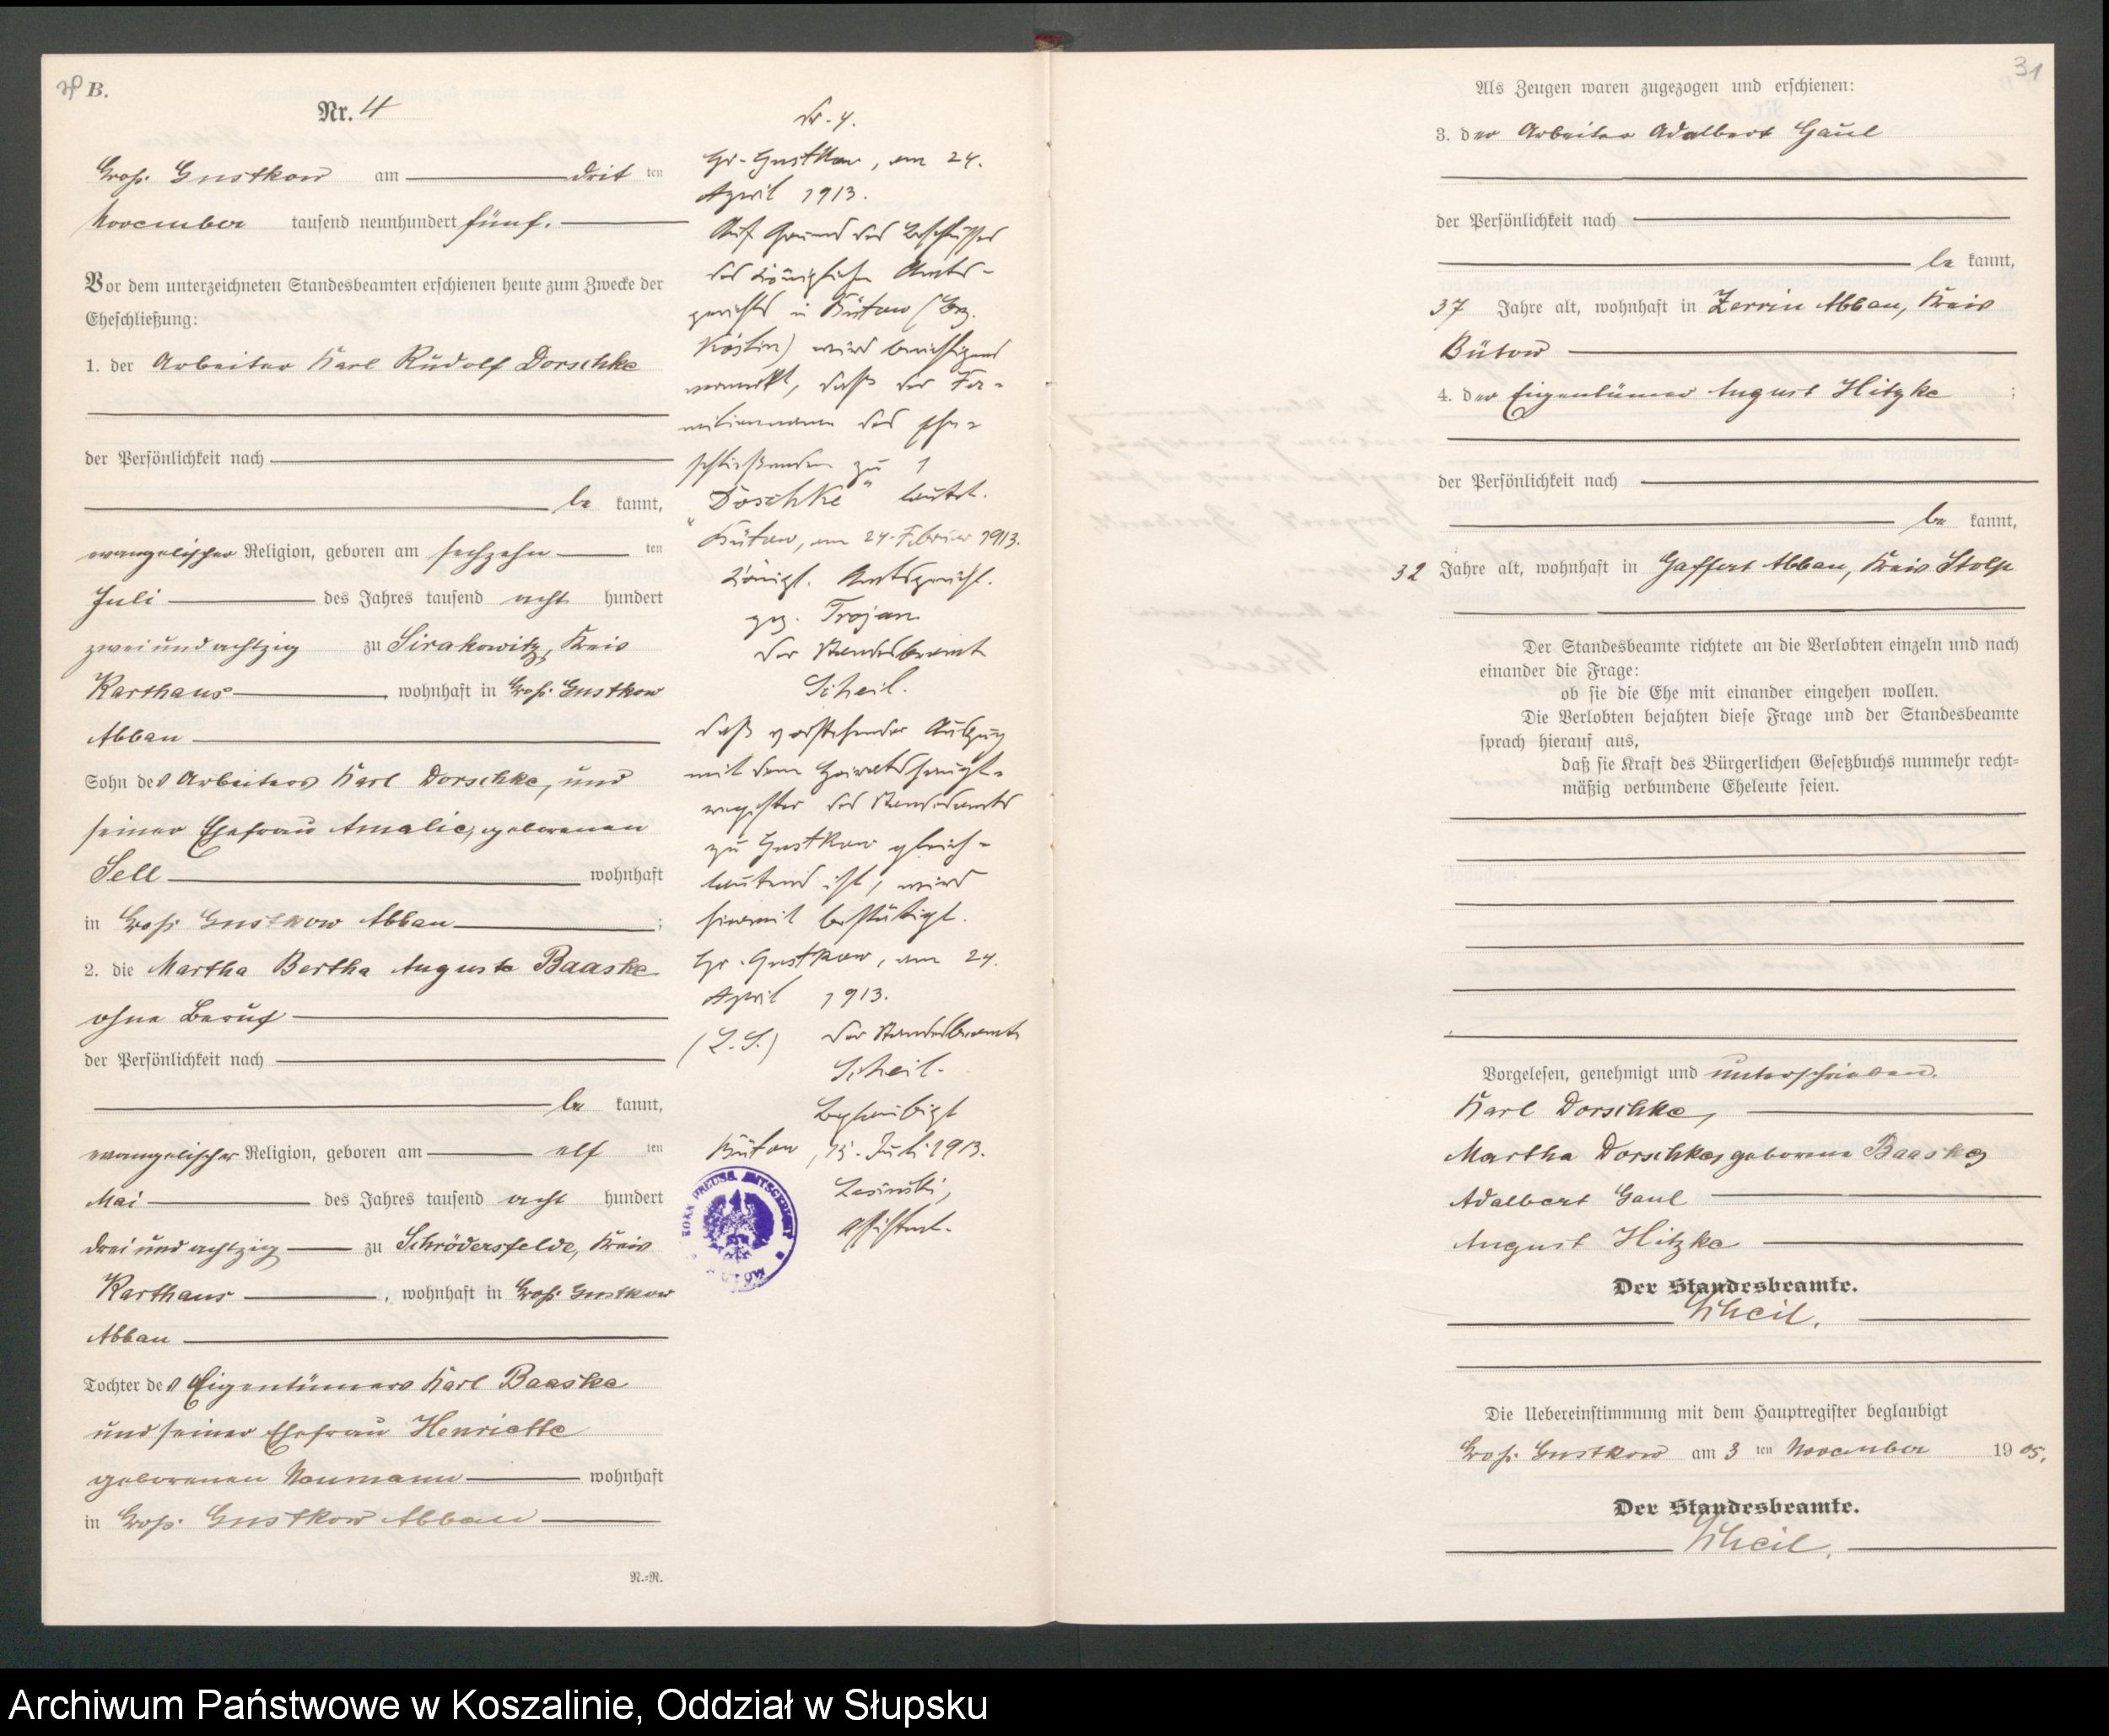 B.
Nr. 4
Groß Gustkow am drit ten
November tausend neunhundert fünf.
Vor dem unterzeichneten Standesbeamten erschienen heute zum Zwecke der
Eheschließung:
1. der Arbeiter Karl Rudolf Dorschke
der Persönlichkeit nach
be kannt,
evangelischer Religion, geboren am sechzehn ten
Juli des Jahres tausend acht hundert
zwei und achtzig zu Sirakowitz, Kreis
Karthaus, wohnhaft in Groß Gustkow
Abbau
Sohn des Arbeiters Karl Dorschke, und
seiner Ehefrau Amalie, geborenen
Sell wohnhaft
in Groß Gustkow Abbau;
2. die Martha Bertha Auguste Baaske
ohne Beruf
der Persönlichkeit nach
be kannt,
evangelischer Religion, geboren am elf ten
Mai des Jahres tausend acht hundert
drei und achtzig zu Schrödersfelde, Kreis
Karthaus, wohnhaft in Groß Gustkow
Abbau
Tochter des Eigentümers Karl Baaske
und seiner Ehefrau Henriette
geborenen Naumann wohnhaft
in Groß Gustkow Abbau
N.=N.
Nr. 4.
Gr. Gustkow, am 24.
April 1913.
Auf Grund des Beschlusses
des Königlichen Amts-
gerichts in Bütow (Bz.
Köslin) wird berichtigend
vermerkt, daß der Fa-
milienname des Ehe-
schließenden zu 1
"Doschke" lautet.
Bütow, am 24. Februar 1913.
Königl. Amtsgericht.
gez. Trojan
Der Standesbeamte
Scheil.
Daß vorstehender Auszug
mit dem Heiratshaupt-
register des Standesamts
zu Gustkow gleich-
lautend ist, wird
hiermit bestätigt.
Gr. Gustkow, am 24.
April 1913.
(L. S.) Der Standesbeamte
Scheil.
Beglaubigt
Bütow, 15. Juli 1913.
Assistent.
KÖN. PREUSS. AMTSGERICHT
BÜTOW
31
Als Zeugen waren zugezogen und erschienen:
3. der Arbeiter Adalbert Gaul
der Persönlichkeit nach
be kannt,
37 Jahre alt, wohnhaft in Zerrin Abbau, Kreis
Bütow
4. der Eigentümer August Hitzke;
der Persönlichkeit nach
be kannt,
32 Jahre alt, wohnhaft in Gaffert Abbau, Kreis Stolp
Der Standesbeamte richtete an die Verlobten einzeln und nach
einander die Frage:
ob sie die Ehe mit einander eingehen wollen.
Die Verlobten bejahten diese Frage und der Standesbeamte
sprach hierauf aus,
daß sie Kraft des Bürgerlichen Gesetzbuchs nunmehr recht=
mäßig verbundene Eheleute seien.
Vorgelesen, genehmigt und unterschrieben.
Karl Dorschke,
Martha Dorschke, geborene Baaske,
Adalbert Gaul
August Hitzke
Der Standesbeamte.
Scheil.
Die Uebereinstimmung mit dem Hauptregister beglaubigt
Groß Gustkow am 3 ten November 1905.
Der Standesbeamte.
Scheil.
Archiwum Państwowe w Koszalinie, Oddział w Słupsku